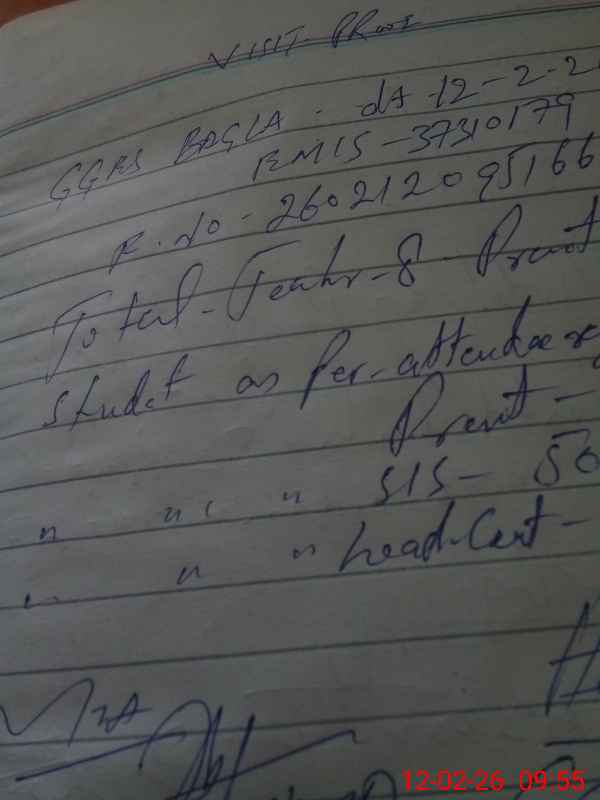 VISIT PROOF
GGPS BAGLA . dt 12-2-2
EMIS - 37310179
R. No - 260212095166
Total - Teachr - 8 Presnt
Studet as Per - attendace
Presnt -
" " " SIS - 50
" " " head Cont -
12-02-26 09:55